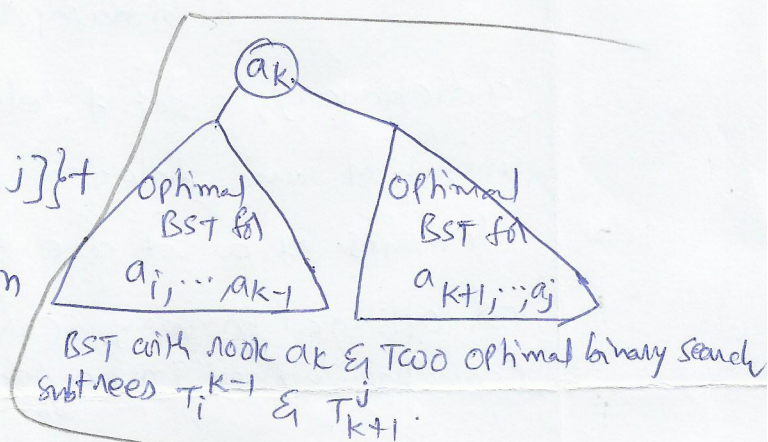 ak
j]}+
Optimal
BST for
ai, ..., ak-1
Optimal
BST for
a k+1, ..., aj
n
BST with root ak & Two optimal binary search
subtrees T_i^{k-1} & T_{k+1}^{j}.